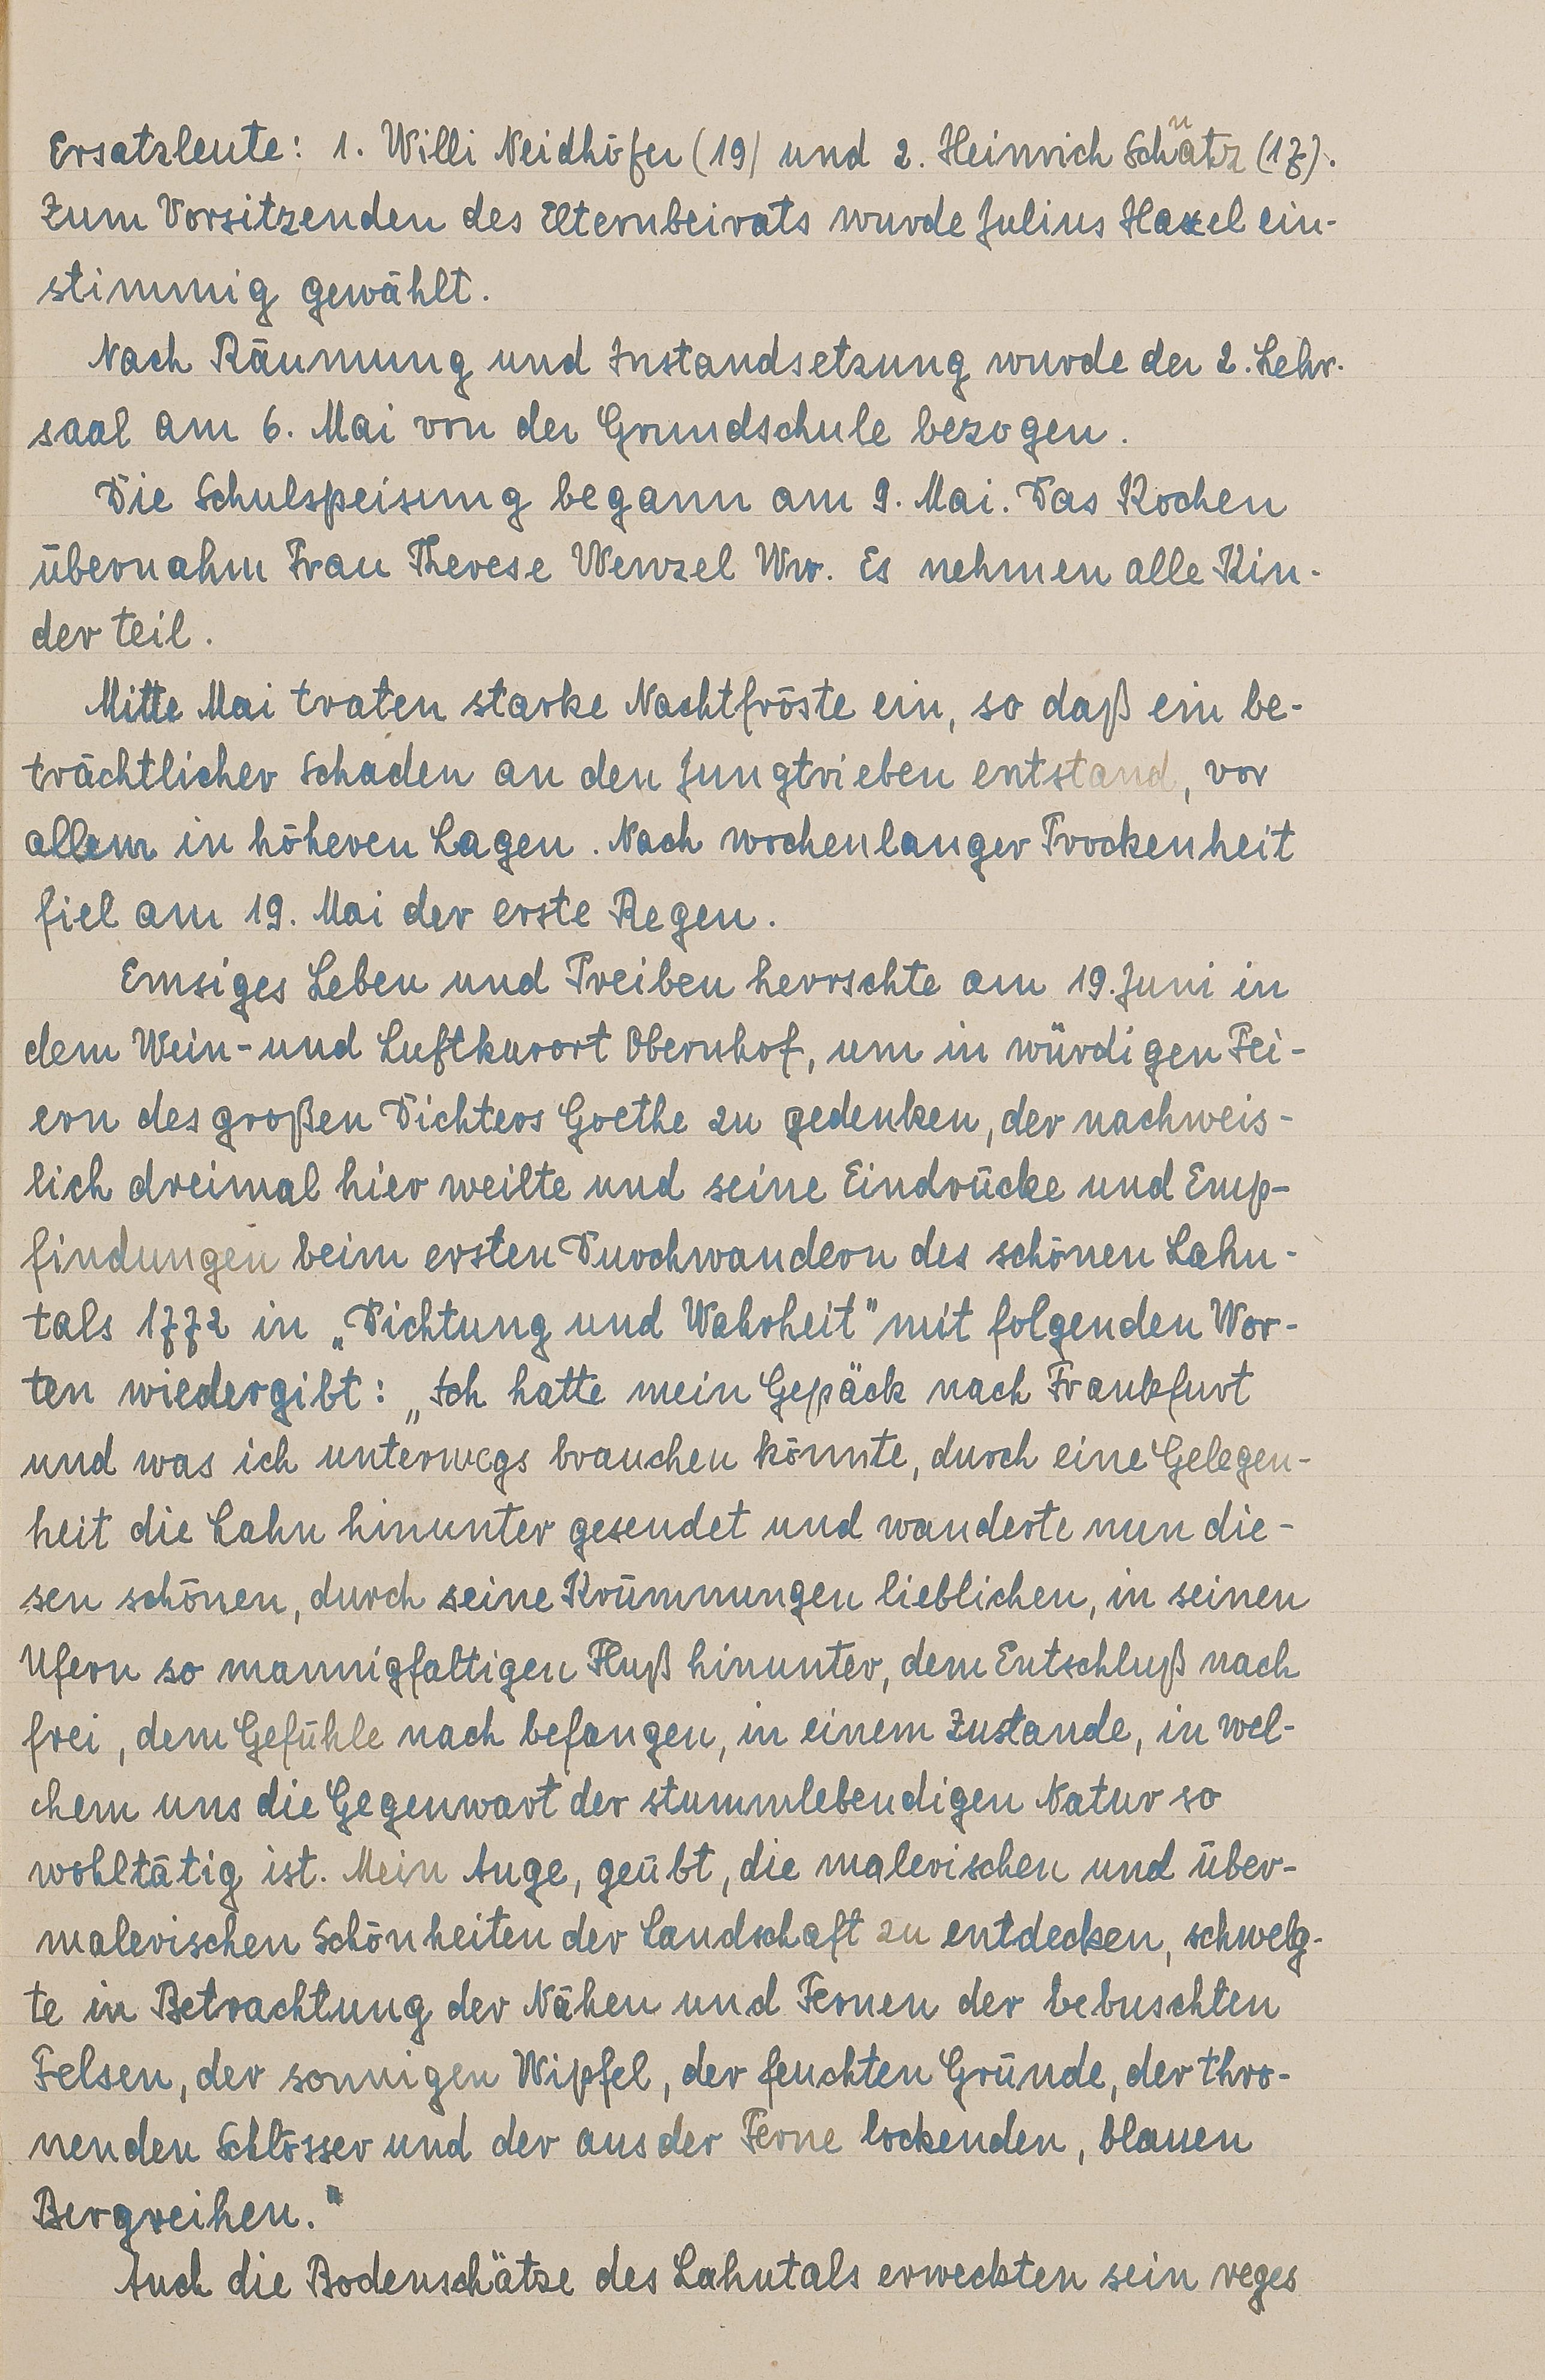 Ersatzleute: 1. Willi Neidhöfer (19) und 2. Heinrich Schütz (17).
Zum Vorsitzenden des Elternbeirats wurde Julius Haxel ein-
stimmig gewählt.
Nach Räumung und Instandsetzung wurde der 2. Lehr-
saal am 6. Mai von der Grundschule bezogen.
Die Schulspeisung begann am 9. Mai. Das Kochen
übernahm Frau Therese Wenzel Ww. Es nehmen alle Kin-
der teil.
Mitte Mai traten starke Nachtfröste ein, so daß ein be-
trächtlicher Schaden an den Jungtrieben entstand, vor
allem in höheren Lagen. Nach wochenlanger Trockenheit
fiel am 19. Mai der erste Regen.
Emsiges Leben und Treiben herrschte am 19. Juni in
dem Wein- und Luftkurort Obernhof, um in würdigen Fei-
ern des großen Dichters Goethe zu gedenken, der nachweis-
lich dreimal hier weilte und seine Eindrücke und Emp-
findungen beim ersten Durchwandern des schönen Lahn-
tals 1772 in „Dichtung und Wahrheit" mit folgenden Wor-
ten wiedergibt: „Ich hatte mein Gepäck nach Frankfurt
und was ich unterwegs brauchen könnte, durch eine Gelegen-
heit die Lahn hinunter gesendet und wanderte nun die-
sen schönen, durch seine Krümmungen lieblichen, in seinen
Ufern so mannigfaltigen Fluß hinunter, dem Entschluß nach
frei, dem Gefühle nach befangen, in einem Zustande, in wel-
chem uns die Gegenwart der stummlebendigen Natur so
wohltätig ist. Mein Auge, geübt, die malerischen und über-
malerischen Schönheiten der Landschaft zu entdecken, schwelg-
te in Betrachtung der Nähen und Fernen der bebuschten
Felsen, der sonnigen Wipfel, der feuchten Gründe, der thro-
nenden Schlösser und der aus der Ferne lockenden, blauen
Bergreihen."
Auch die Bodenschätze des Lahntals erweckten sein reges